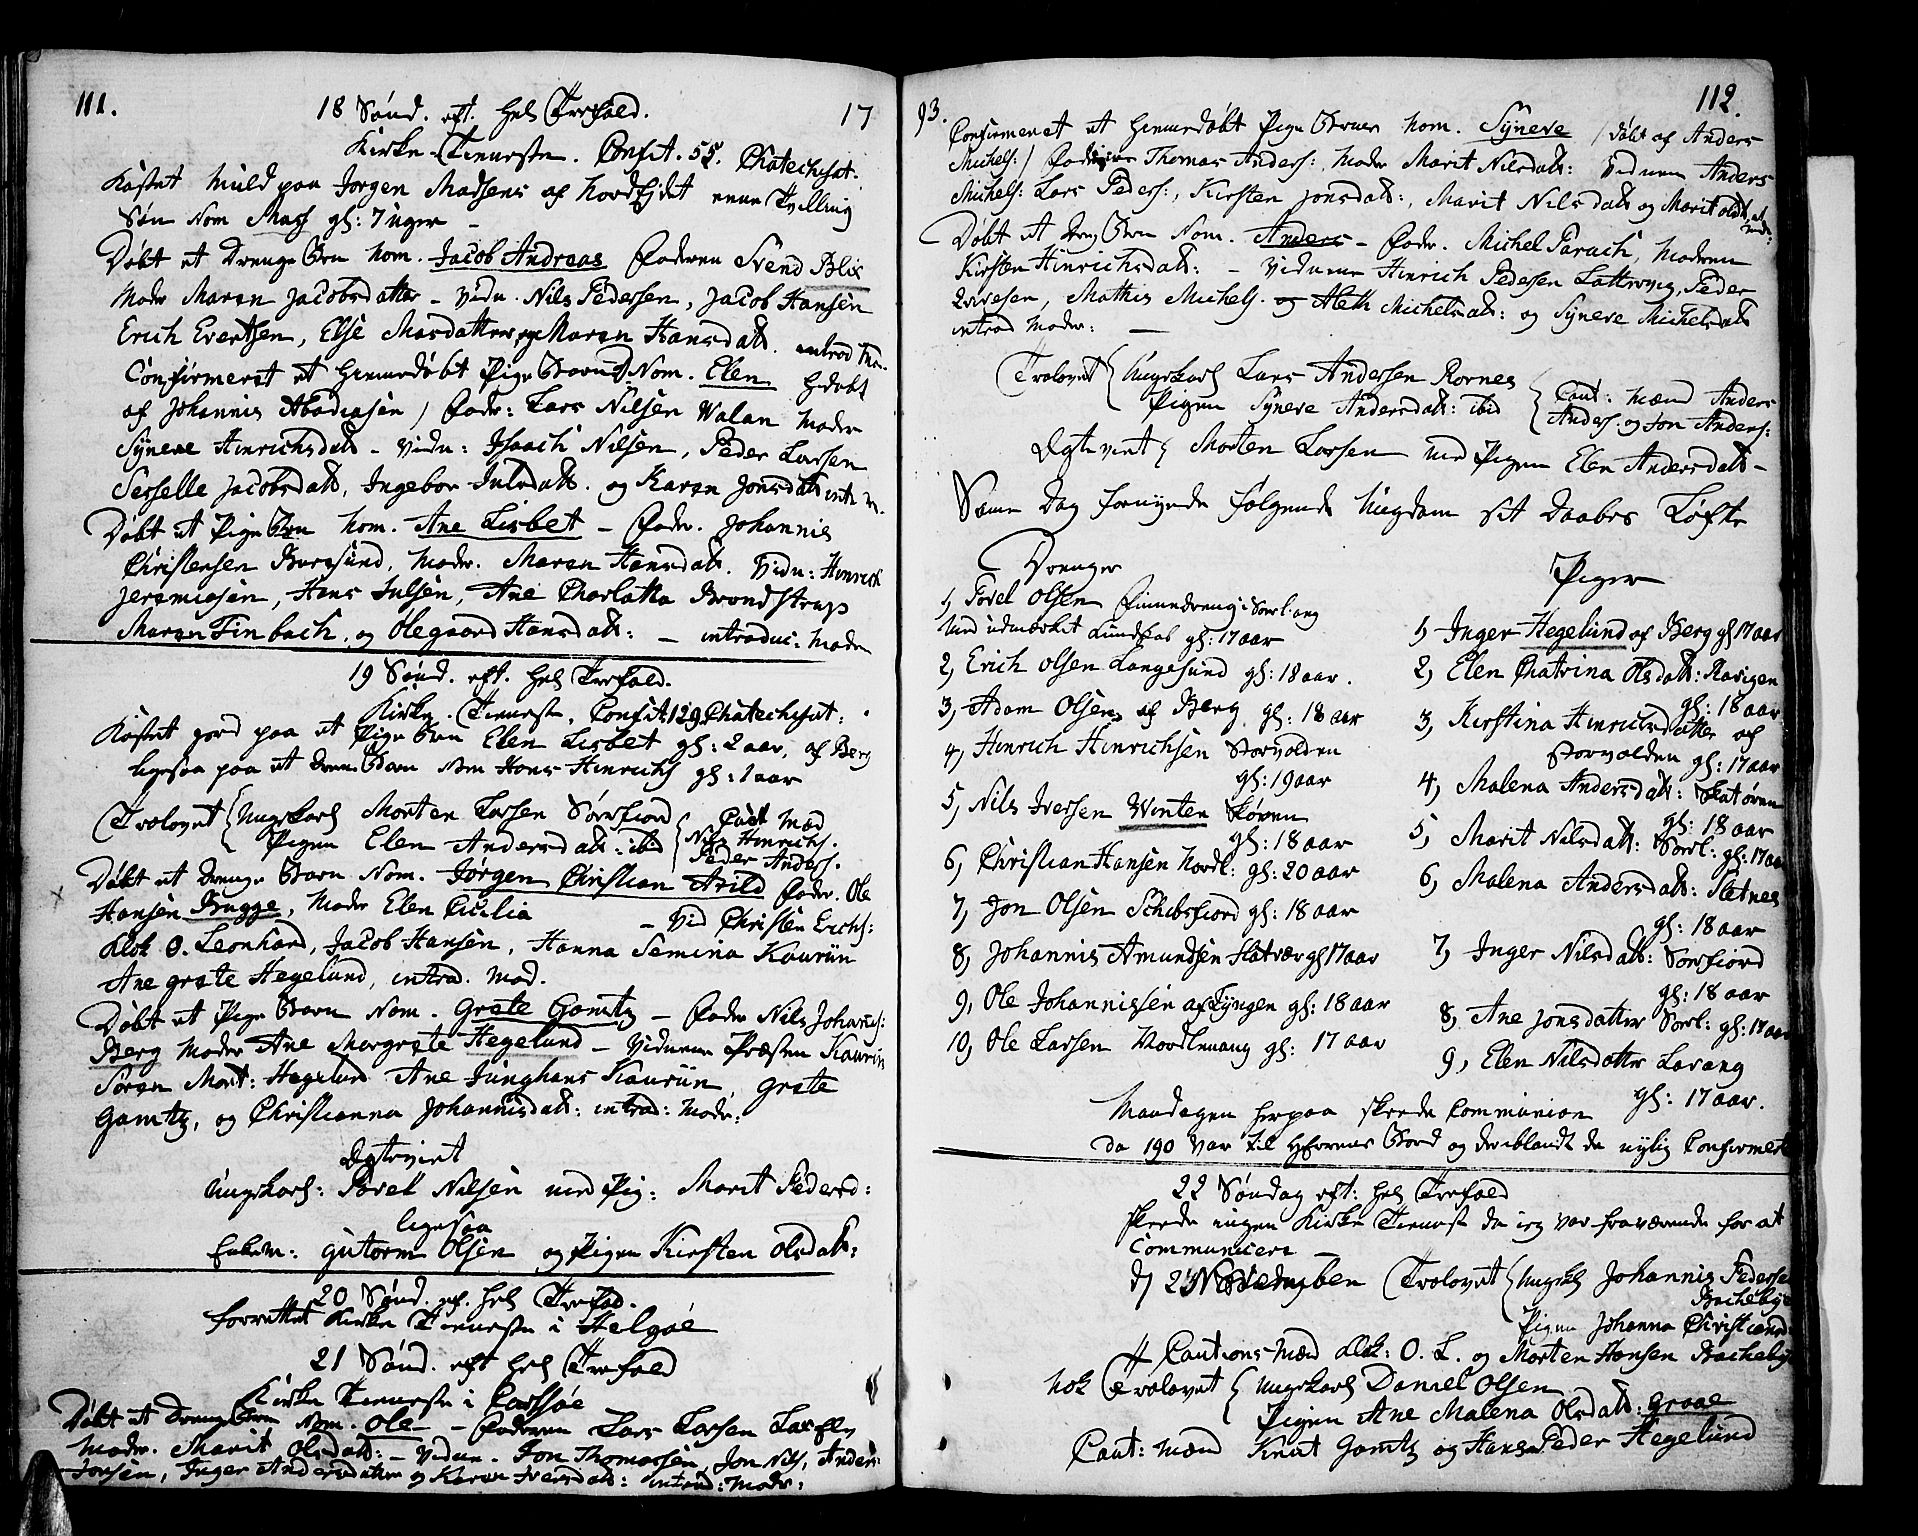 111.
18 Sønd. eft. hel Trefold.
17
Kirke Tieneste. Confit. 55. Chatechisat:
Kastet Muld paa Jørgen Madsens af Nordfijdt ene Tvilling
Søn Nom Mass gl: 7 uger -
Døbt et Drenge Brn Nom. Jacob Andreas Faderen Svend Blix
Moder Maren Jacobsdatter - Vidn. Nils Pedersen, Jacob Hansen
Erich Evertsen, Else Masdatter, og Maren Hansdatt. introd Mo.
Confirmeret et hiemedøbt Pige Barn Nom. Elen hdøbt
af Johannis Abediasen / Fader: Lars Nilsen Walan Moder
Syneve Hinrichsdatt - Vidn: Isaach Nilsen, Peder Larsen
Sesselle Jacobsdatt, Ingebor Julsdatt. og Karen Jonsdatt intr. M.
Døbt et Pige Brn Nom. Ane Lisbet - Fader. Johannis
Christensen Buresund, Moder. Maren Hansdatt. Vidn: Hinrich
Jeremiasen, Hans Julsen, Ane Charlotta Brondstrup
Maren Finbach, og Olegaard Hansdatt: - introduc: Moder
19 Sønd. eft. hel Trefold.
Kirke Tieneste, Confit 129 Chatechisat:
Kastet Jord paa et Pige Brn Elen Lisbet gl: 2 aar, af Berg
ligesaa paa et Drenge Barn Nom Hans Hinrichs gl: 1 aar
Trolovet Ungekarl Morten Larsen Sørfiord Caut Mæd
Pigen Elen Andersdatt: ibid Nils Hinrichs.
Peder Anders.
Døbt et Drenge Barn Nom. Jørgen Christian Arild Fader. Ole
Hansen Brugge, Moder Elen Cicilia - Vid Christen Erichs:
Klok O. Leonhard, Jacob Hansen, Hanna Semina Kauriin
Ane grete Hegelund, introd. Mod.
Døbt et Pige Barn Nom. Grete Gamtz - Fader Nils Johanes:
Berg Moder Ane Margrete Hegelund - Vidnene Præsten Kaurin
Søren Mort: Hegelund Ane Junghans Kauriin grete
Gamtz, og Christianna Johannisdatt: introd: Moder:
Egteviet
Ungekarl: Povel Nilsen med Pig: Marit Pedersd:
ligesaa
Enkem: gutorm Olsen og Pigen Kirsten Olsdatt:
20 Sønd. ef. hel Trefol.
forrettet Kirke Tieneste i Helgøe
21 Sønd. eft hel Trefold
Kirke Tieneste i Carlsøe
Døbt et Drenge Brn Nom. Ole - Faderen Lars Larsen
Moder. Marit Olsdatt: - Vidn. Jon Thomassen, Jon Nils, Anders
Jonsen, Inger Andersdatter og Karen Iversdatt: introd: Moder:
93.
112.
Confirmeret et hiemedøbt Pige Barn Nom. Syneve / døbt af Anders
Michels:/ Faderen Thomas Anders: Moder Marit Nilsdatt: Vidnene Anders
Michels: Lars Peders:, Kirsten Jonsdatt:, Marit Nilsdatt og Marit Olsdatt
Døbt et Dreng Brn Nom. Anders - Fader. Michel Parach, Moderen
Kirsten Hinrichsdatt: - Vidnene Hinrich Pedersen Lattervig, Peder
Iversen, Mathis Michels. og Aleth Michelsdatt: og Syneve Michelsdatt
introd Moder:
Trolovet Ungekarl Lars Andersen Rornes Caut: Mænd Anders
Pigen Syneve Andersdatt: ibid Anders. og Jon Anders:
Egteviet Morten Larsen med Pigen Elen Andersdatt -
Same Dag fornyede følgende Ungdom sit Daabes Løfte
Drenger
1, Povel Olsen Finnedreng i Sørl:ang
med udmerket Kundskab gl: 17 aar
2, Erich Olsen Langesund gl: 18 aar.
3, Adam Olsen af Berg gl: 18 aar
4, Hinrich Hinrichsen Storvolden
gl: 19 aar
5, Nils Iversen Winten Skøven
gl: 18 aar
6, Christian Hansen Nordl: gl: 20 aar
7, Jon Olsen Schibsfiord gl: 18 aar
8, Johannis Amundsen Slatvær gl 17 aar
9, Ole Johannissen af Lyngen gl: 18 aar
10, Ole Larsen Nordlenang gl: 17 aar
Piger
1, Inger Hegelund af Berg gl 17 aar
2, Elen Chatrina Olsdatt: Ravigen
gl: 18 aar
3, Kirstina Hinrichsdatter af
Storvolden gl: 17 aar
4, Malena Andersdatt: Skatøren
gl: 18 aar
5, Marit Nilsdatt: Sørl: gl: 17 aar
6, Malena Andersdatt: Sletnes
gl: 18 aar
7, Inger Nilsdatt: Sørfiord
gl: 18 aar
8, Ane Jonsdatter Sørl: gl: 17 aar
9, Elen Nilsdatter Lavang
gl: 17 aar.
Mandagen herpaa skeede Communion
da 190 var til Herrens Bord og deriblandt de nylig Confirmerte
22 Søndag eft: hel Trefold
skeede ingen Kirke Tieneste da ieg var fraværende for at
Communicere -
d 2 Novemben Trolovet Ungkl Johannis Pedersen
Bachebye
Pigen Johanna Christiansd
Cautions Mænd Klok: O. L. og Morten Hansen Bachebye
Nok Trolovet Ungekarl Daniel Olsen
Pigen Ane Malena Olsdatt: graae
Caut: Mænd Knut Gamtz og Hans Peder Hegelund